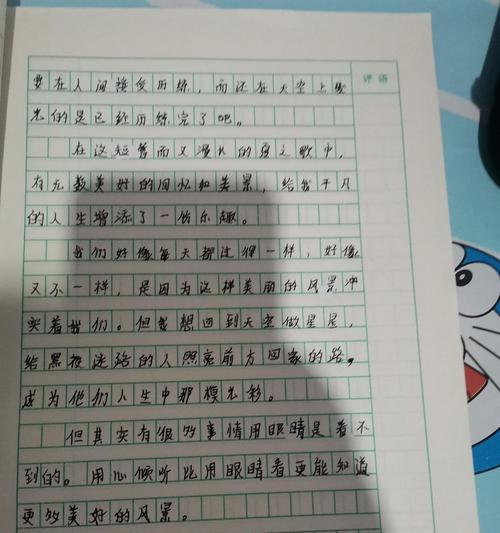 评语
要在人间接受历练，而还在天空上发
光的是已经历练完了吧。
在这短暂而又漫长的夏之歌中，
有无数美好的回忆和美景，给我平凡
的人生增添了一份乐趣。
我们好像每天都过得一样，好像
又不一样，是因为这样美丽的风景冲
实着我们。但我想回到天空做星星，
给黑夜迷路的人照亮前方回家的路。
成为他们人生中那模光彩。
但其实有很多事情用眼睛是看不
到的。用心倾听比用眼睛看更能知道
更多美好的风景。